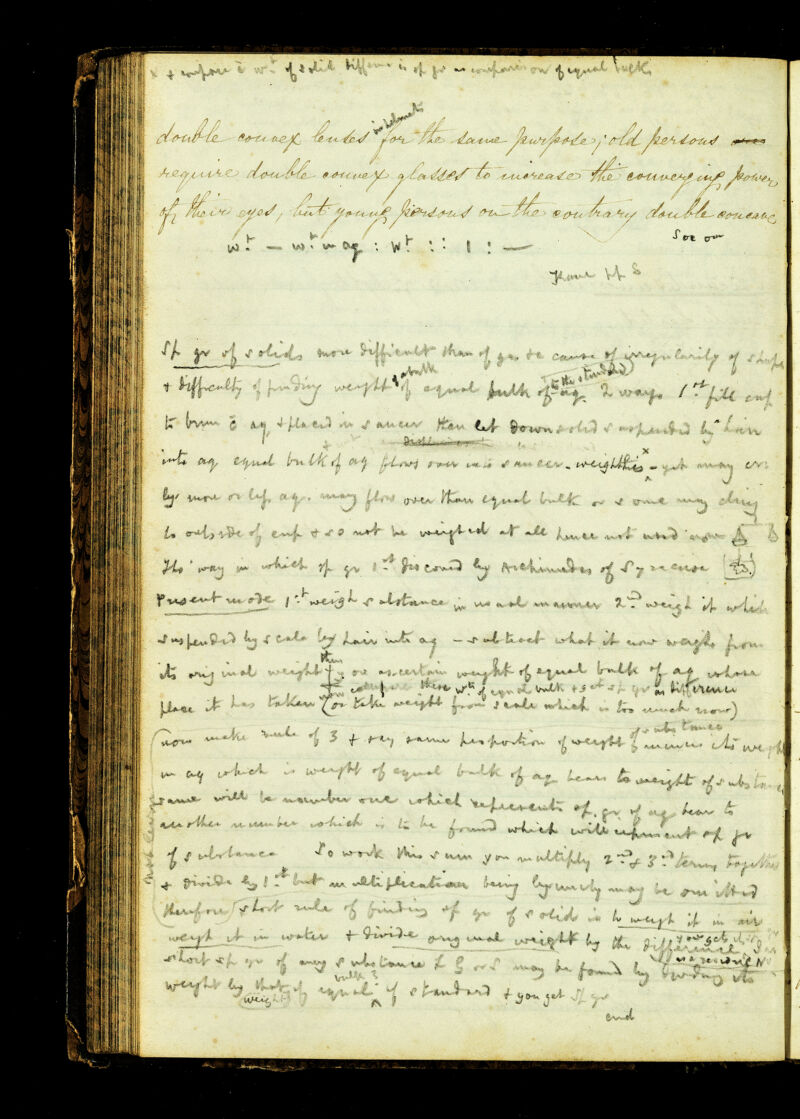 x & compare c̄ wt. of solid difference is sp gr as comparison of equal bulks
double convex lenses in helmets for the same purpose; old persons
require double convex glasses to increase the converging power
of their eyes, but young persons on the contrary double concave
wt. — wt. in aq : wt :: 1 : —
See on
Kane pp 8
Sp gr of solids more difficult than of gas &c cause of irregularity of shape
& difficulty of finding weight & a bulk of equal bulk of aq. (to the standard) 2 ways 1st. fill cup
to brim c̄ aq, & placed in saucer then let down solid suspended by hair
into aq equal bulk of aq flows over into saucer - weigh this x - yet may err
by more or less aq. may flow over than equal bulk or some may cling
to outside of cup & so not be weighed at all hence not used now
This way in which sp gr 1st. discovered by Archimedes of Syracuse
Present mode 1st. weigh substance in usual manner 2nd. weigh it while
suspended by scale by hair into aq — subtract what it now weighs from
its original weight then you ascertain weight of equal bulk of aq whose
now compare these wts. of equal bulk & set sp gr as difference
place it has taken (or take weight from scale which is too much now)
(now make rule of 3 & say same proportion of weight of substance minus its weight
in aq which is weight of equal bulk of aq bears to weight of substance
same will be number one which represents sp. gr of aq bear to
another number which is to be found which will represent sp gr
of substance So work this sum you multiply 2nd. & 3rd. terms together
& divide by 1st. but multiplication being by unity may be omitted
therefore) short rule of finding sp gr of solids is to weigh it in air
weigh it in water & divide original weight by the difference you get
short sp gr of any substance L G or S may be found by dividing its
weight by that of equal bulk of standard & you get sp gr
(weight)
end